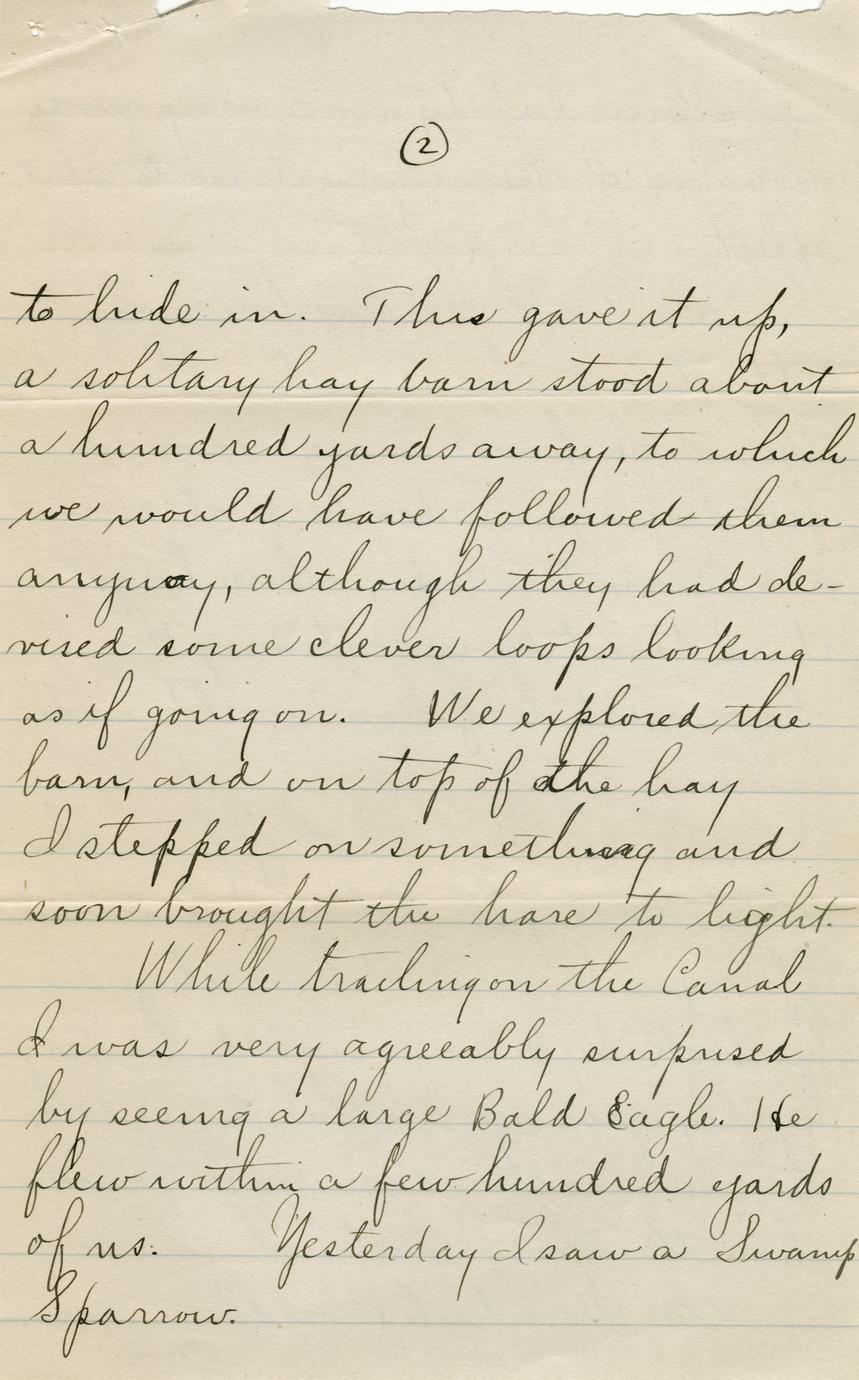 2
to hide in. This gave it up,
a solitary hay barn stood about
a hundred yards away, to which
we would have followed them
anyway, although they had de-
vised some clever loops looking
as if going on. We explored the
barn, and on top of the hay
I stepped on something and
soon brought the hare to light.
While trailing on the Canal
I was very agreeably surprised
by seeing a large Bald Eagle. He
flew within a few hundred yards
of us. Yesterday I saw a Swamp
Sparrow.